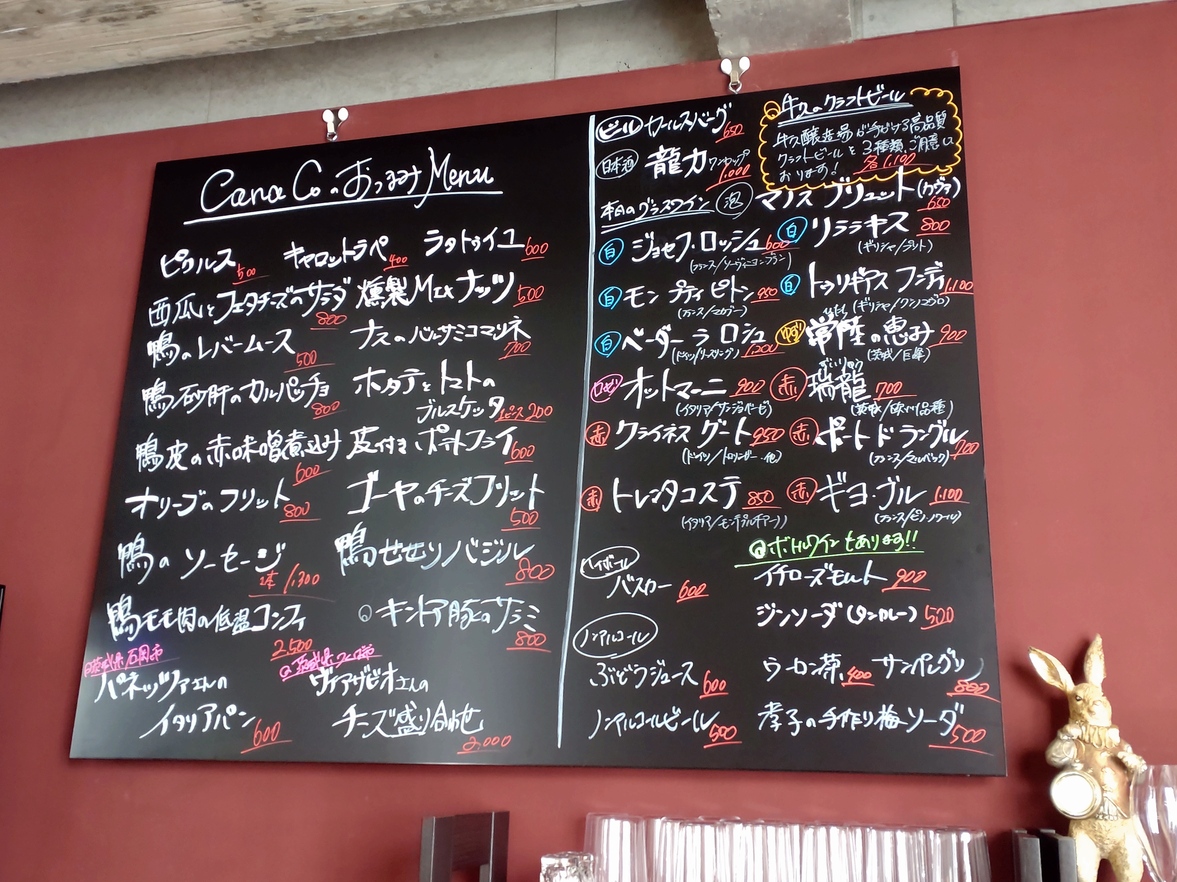 Cana Coのおつまみ Menu
ピクルス 500 キャロットラペ 400 ラタトゥイユ 600
西瓜とフェタチーズのサラダ 800 燻製Mixナッツ 500
鴨のレバームース 500 ナスのバルサミコマリネ 700
鴨砂肝のカルパッチョ 800 ホタテとトマトの
ブルスケッタ 1ピース 200
鴨皮の赤味噌煮込み 600 皮付きポテトフライ 600
オリーブのフリット 800 ゴーヤのチーズフリット 500
鴨のソーセージ 2本/1,300 鴨せせりバジル 800
鴨モモ肉の低温コンフィ 2,500 キントア豚のサラミ 800
茨城県石岡市 茨城県つくば市
パネッツァさんの ヴィアザビオさんの
イタリアパン 600 チーズ盛り合わせ 2,000
ビール カールスバーグ 650
日本酒 龍力 ワンカップ 1,000
牛久のクラフトビール
牛久醸造場が手がける高品質
クラフトビールを3種類ご用意し
おります! 各1,100
本日のグラスワイン 泡 マノス ブリュット (カヴァ) 650
白 ジョセフ・ロッシュ 600 白 リララキス 800
(フランス/ソーヴィニヨンブラン)
白 モン プティ ピトン 950 白 トゥリギアス フンディ 1,100
白 ベーダー ラ ロシュ 1,200 ゆず 常陸の恵み 900
(ドイツ/リースリング) (茨城/巨峰)
ロゼ オットマーニ 900 赤 瑞龍 700
(イタリア/サンジョベーゼ)
赤 クライネス グート 950 赤 ポート ド ラングル 700
(フランス/マルベック)
赤 トレンタコステ 850 赤 ギヨ・ブル 1,100
(イタリア/モンテプルチアーノ) (フランス/ピノ・ノワール)
@ボトルワインもあります!!
ハイボール
バスカー 600 イチローズモルト 900
ジンソーダ(タンカレー) 500
ノンアルコール
ぶどうジュース 600 ウーロン茶 400 サンペレグリノ 800
ノンアルコールビール 500 孝子の手作り梅ソーダ 500